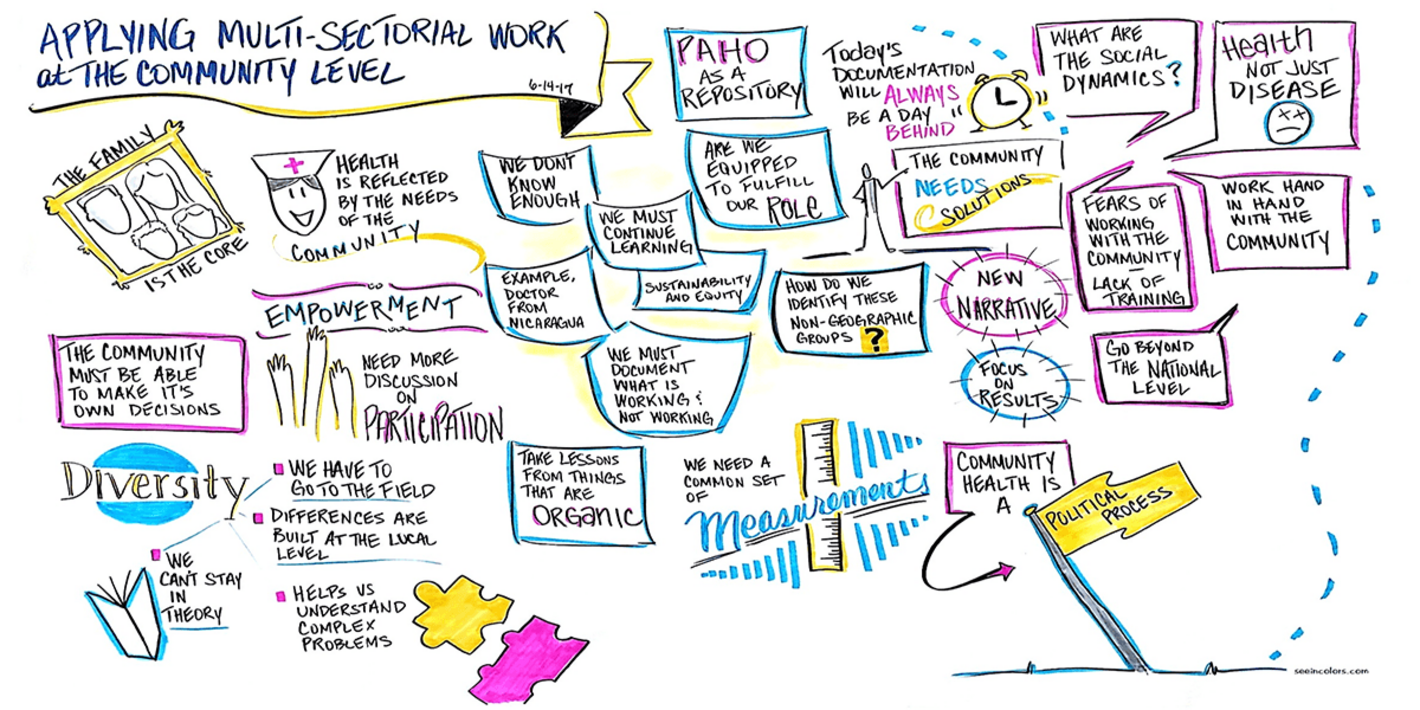 APPLYING MULTI-SECTORIAL WORK
at THE COMMUNITY LEVEL
6-14-17
THE FAMILY
IS THE CORE
HEALTH
IS REFLECTED
BY THE NEEDS
OF THE
COMMUNITY
EMPOWERMENT
THE COMMUNITY
MUST BE ABLE
TO MAKE IT'S
OWN DECISIONS
NEED MORE
DISCUSSION
ON
PARTICIPATION
Diversity
WE HAVE TO
GO TO THE FIELD
DIFFERENCES ARE
BUILT AT THE LOCAL
LEVEL
WE
CAN'T STAY
IN
THEORY
HELPS US
UNDERSTAND
COMPLEX
PROBLEMS
PAHO
AS A
REPOSITORY
WE DON'T
KNOW
ENOUGH
WE MUST
CONTINUE
LEARNING
ARE WE
EQUIPPED
TO FULFILL
OUR ROLE
EXAMPLE,
DOCTOR
FROM
NICARAGUA
SUSTAINABILITY
AND EQUITY
WE MUST
DOCUMENT
WHAT IS
WORKING &
NOT WORKING
HOW DO WE
IDENTIFY THESE
NON-GEOGRAPHIC
GROUPS ?
TAKE LESSONS
FROM THINGS
THAT ARE
ORGANIC
WE NEED A
COMMON SET
OF
Measurements
Today's
DOCUMENTATION
WILL ALWAYS
BE A DAY
BEHIND
THE COMMUNITY
NEEDS
SOLUTIONS
NEW
NARRATIVE
FOCUS
ON
RESULTS
WHAT ARE
THE SOCIAL
DYNAMICS?
Health
NOT JUST
DISEASE
FEARS OF
WORKING
WITH THE
COMMUNITY
—
LACK OF
TRAINING
WORK HAND
IN HAND
WITH THE
COMMUNITY
GO BEYOND
THE NATIONAL
LEVEL
COMMUNITY
HEALTH IS
A
POLITICAL
PROCESS
seeincolors.com